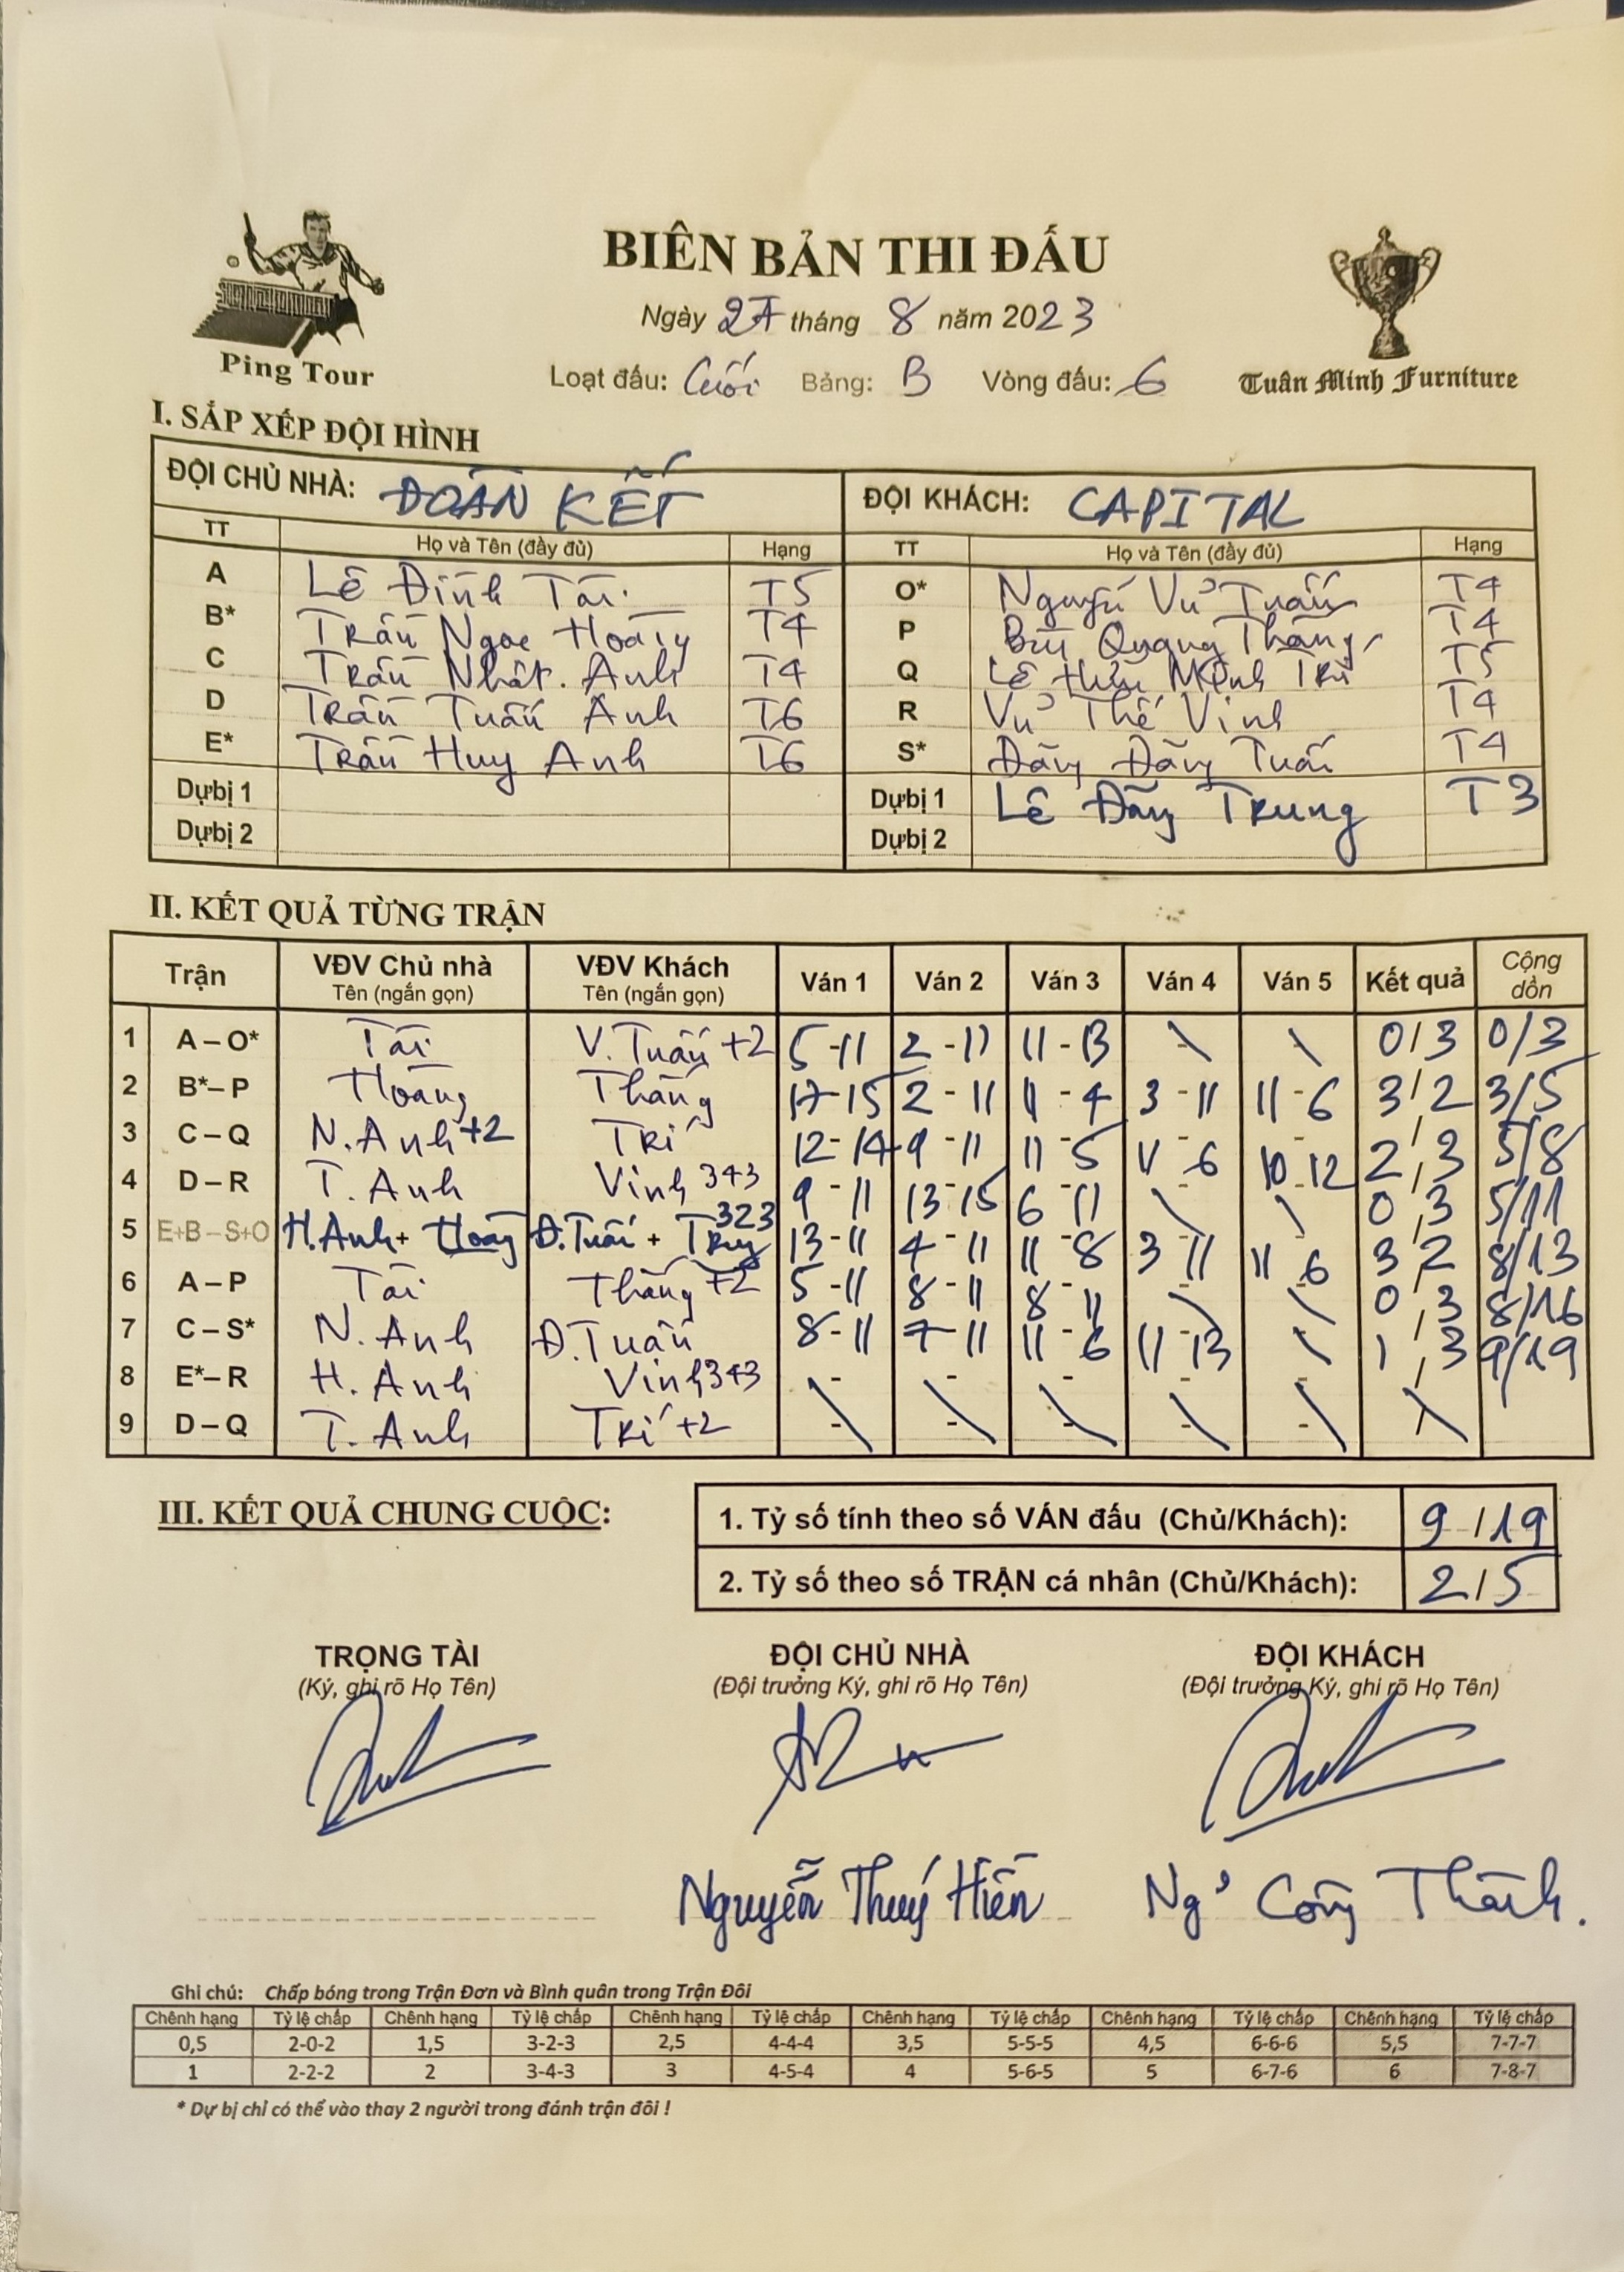 BIÊN BẢN THI ĐẤU
Ngày 27 tháng 8 năm 2023
Ping Tour
Loạt đấu: Cuối Bảng: B Vòng đấu: 6
Tuân Minh Furniture
I. SẮP XẾP ĐỘI HÌNH
ĐỘI CHỦ NHÀ: ĐOÀN KẾT ĐỘI KHÁCH: CAPITAL
TT Họ và Tên (đầy đủ) Hạng TT Họ và Tên (đầy đủ) Hạng
A Lê Đình Tài T5 O* Nguyễn Vũ Tuấn T4
B* Trần Ngọc Hoàng T4 P Bùi Quang Thắng T4
C Trần Nhật Anh T4 Q Lê Hữu Minh Trí T5
D Trần Tuấn Anh T6 R Vũ Thế Vinh T4
E* Trần Huy Anh T6 S* Đặng Đăng Tuấn T4
Dựbị 1 Dựbị 1 Lê Đăng Trung T3
Dựbị 2 Dựbị 2
II. KẾT QUẢ TỪNG TRẬN
Trận VĐV Chủ nhà Tên (ngắn gọn) VĐV Khách Tên (ngắn gọn) Ván 1 Ván 2 Ván 3 Ván 4 Ván 5 Kết quả Cộng dồn
1 A – O* Tài V. Tuấn +2 5-11 2-11 11-13 - - 0/3 0/3
2 B*– P Hoàng Thắng 17-15 2-11 11-4 3-11 11-6 3/2 3/5
3 C – Q N. Anh +2 Trí 12-14 9-11 11-5 11-6 10-12 2/3 5/8
4 D – R T. Anh Vinh 343 9-11 13-15 6-11 - - 0/3 5/11
5 E+B – S+O H.Anh + Hoàng Đ.Tuấn + Trung 323 13-11 4-11 11-8 3-11 11-6 3/2 8/13
6 A – P Tài Thắng +2 5-11 8-11 8-11 - - 0/3 8/16
7 C – S* N. Anh Đ.Tuấn 8-11 7-11 11-6 11-13 - 1/3 9/19
8 E*– R H. Anh Vinh 343 - - - - - /
9 D – Q T. Anh Trí +2 - - - - - /
III. KẾT QUẢ CHUNG CUỘC:
1. Tỷ số tính theo số VÁN đấu (Chủ/Khách): 9/19
2. Tỷ số theo số TRẬN cá nhân (Chủ/Khách): 2/5
TRỌNG TÀI ĐỘI CHỦ NHÀ ĐỘI KHÁCH
(Ký, ghi rõ Họ Tên) (Đội trưởng Ký, ghi rõ Họ Tên) (Đội trưởng Ký, ghi rõ Họ Tên)
Nguyễn Thuý Hiền Ng~ Công Thành.
Ghi chú: Chấp bóng trong Trận Đơn và Bình quân trong Trận Đôi
Chênh hạng Tỷ lệ chấp Chênh hạng Tỷ lệ chấp Chênh hạng Tỷ lệ chấp Chênh hạng Tỷ lệ chấp Chênh hạng Tỷ lệ chấp Chênh hạng Tỷ lệ chấp
0,5 2-0-2 1,5 3-2-3 2,5 4-4-4 3,5 5-5-5 4,5 6-6-6 5,5 7-7-7
1 2-2-2 2 3-4-3 3 4-5-4 4 5-6-5 5 6-7-6 6 7-8-7
* Dự bị chỉ có thể vào thay 2 người trong đánh trận đôi !